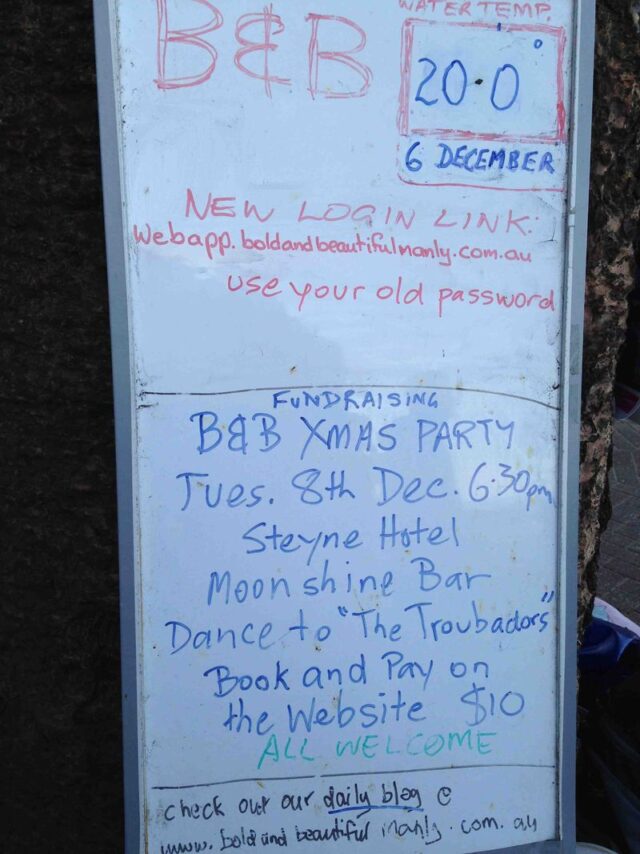 B&B
WATER TEMP.
20.0°
6 DECEMBER
NEW LOGIN LINK:
webapp.boldandbeautifulmanly.com.au
use your old password
FUNDRAISING
B&B XMAS PARTY
Tues. 8th Dec. 6.30pm
Steyne Hotel
Moonshine Bar
Dance to "The Troubadors"
Book and Pay on
the Website $10
ALL WELCOME
check out our daily blog @
www.boldandbeautifulmanly.com.au